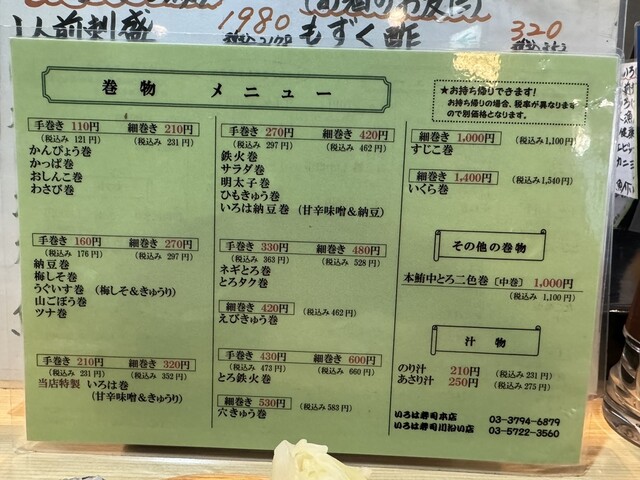 1人前刺盛
1980
もずく酢
320
巻物 メニュー
★お持ち帰りできます！
お持ち帰りの場合、税率が異なります
ので別価格となります。
手巻き 110円 細巻き 210円
(税込み 121円) (税込み 231円)
かんぴょう巻
かっぱ巻
おしんこ巻
わさび巻
手巻き 160円 細巻き 270円
(税込み 176円) (税込み 297円)
納豆巻
梅しそ巻
うぐいす巻 (梅しそ&きゅうり)
山ごぼう巻
ツナ巻
手巻き 210円 細巻き 320円
(税込み 231円) (税込み 352円)
当店特製 いろは巻
(甘辛味噌&きゅうり)
手巻き 270円 細巻き 420円
(税込み 297円) (税込み 462円)
鉄火巻
サラダ巻
明太子巻
ひもきゅう巻
いろは納豆巻 (甘辛味噌&納豆)
手巻き 330円 細巻き 480円
(税込み 363円) (税込み 528円)
ネギとろ巻
とろタク巻
細巻き 420円 (税込み462円)
えびきゅう巻
手巻き 430円 細巻き 600円
(税込み 473円) (税込み 660円)
とろ鉄火巻
細巻き 530円 (税込み583円)
穴きゅう巻
細巻き 1,000円 (税込み1,100円)
すじこ巻
細巻き 1,400円 (税込み1,540円)
いくら巻
その他の巻物
本鮪中とろ二色巻 [中巻] 1,000円
(税込み 1,100円)
汁物
のり汁 210円 (税込み 231円)
あさり汁 250円 (税込み 275円)
いろは寿司本店 03-3794-6879
いろは寿司川沿い店 03-5722-3560